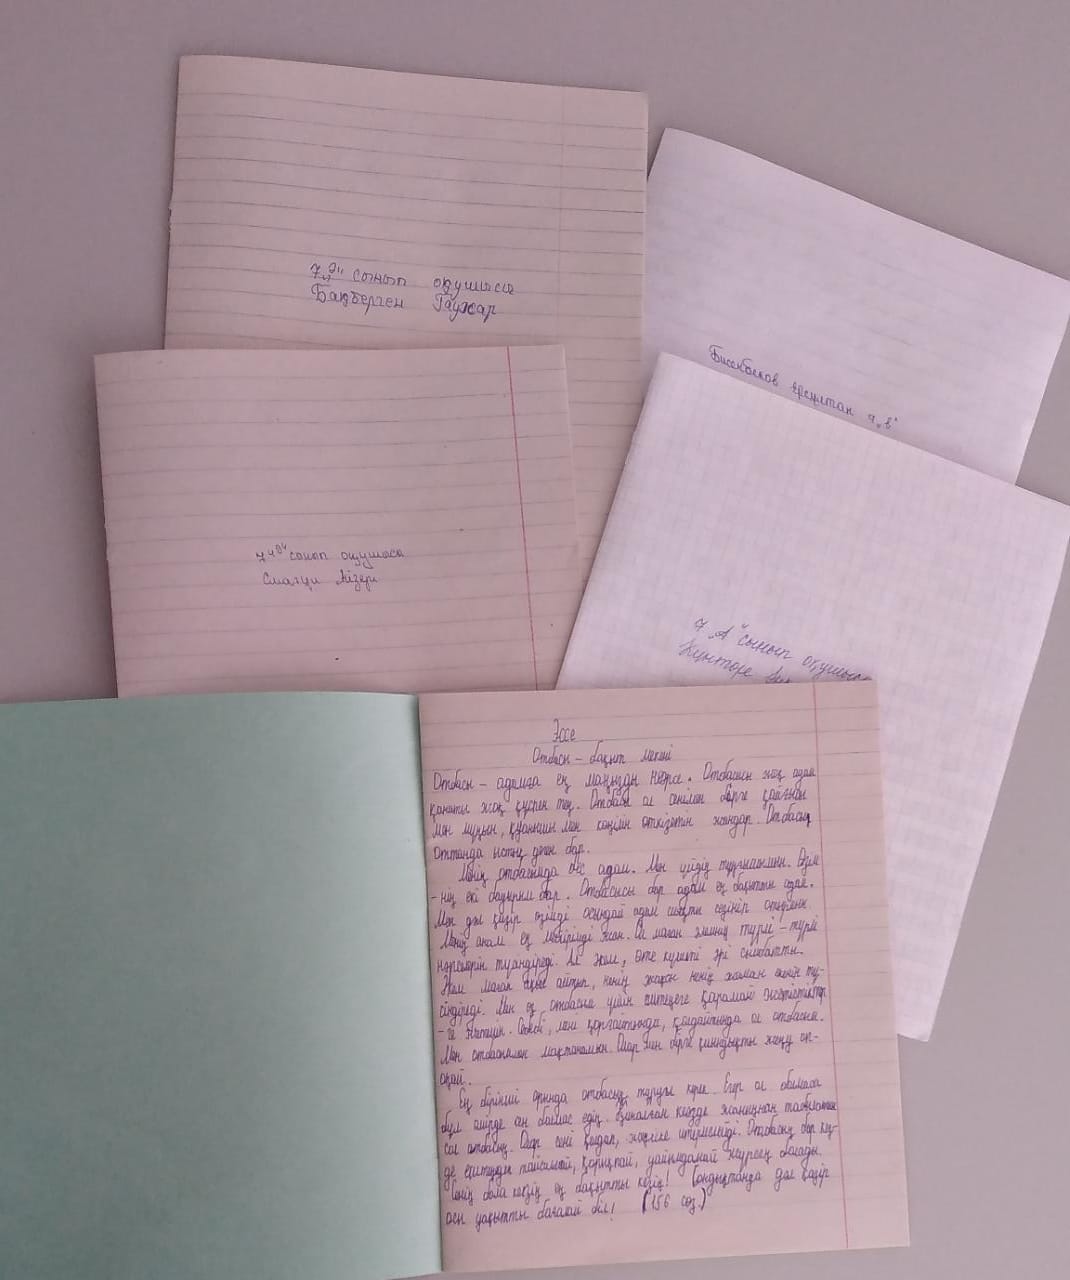 7 "Ә" сынып оқушысы
Бақберген Гаухар
Бисенбаков 7 "в"
7 "Ә" сынып оқушысы
Смағұл Айзере
7 "А" сынып оқушысы
Күнторе
Эссе
Отбасы - бақыт мекені
Отбасы - адамға ең маңызды нәрсе. Отбасысы жоқ адам
қанаты жоқ құспен тең. Отбасы ол сенімен бірге қайғыңды
мен мұңын, қуанышын мен көңілін өткізетін жандар. Отбасың
Оттанда ыстық деген бар.
Менің отбасымда бес адам. Мен үйдің тұңғышымын. Өзім
-нің екі бауырым бар. Отбасысы бар адам ең бақытты адам.
Мен дәл қазір өзімді осындай адам сияқты сезініп отырмын.
Менің анам ең мейірімді жан. Ол маған әлемнің түрлі-түрлі
нәрселерін түсіндіреді. Ал әкем, өте күшті әрі сымбатты.
Әкем маған ақыл айтып, ненің жақсы ненің жаман екенін тү-
сіндіреді. Мен өз отбасым үшін ештеңеге қарамай жетістіктер
-ге жетемін. Себебі, мені қорғайтында, қолдайтында ол отбасым.
Мен отбасыммен мақтанамын. Олар мен бірге қиындықты жеңу оп-
оңай.
Ең бірінші орында отбасың тұруы керек. Егер ол болмаса
бұл өмірде сен болмас едің. Қиналған кезде жаныңнан табылатын
сол отбасың. Олар сені қолдап, жәрдем Отбасың бар кез-
де ештеңеден тайсалмай, қорықпай, уайымдамай жүрсең болады.
Сенің бала кезің ең бақытты кезің! Сондықтанда дәл қазір
осы уақытты бағалай біл! (156 сөз.)